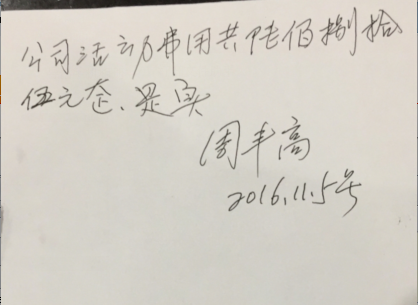 公司活动费用共陆佰捌拾
伍元整、是实
周丰高
2016.11.5号